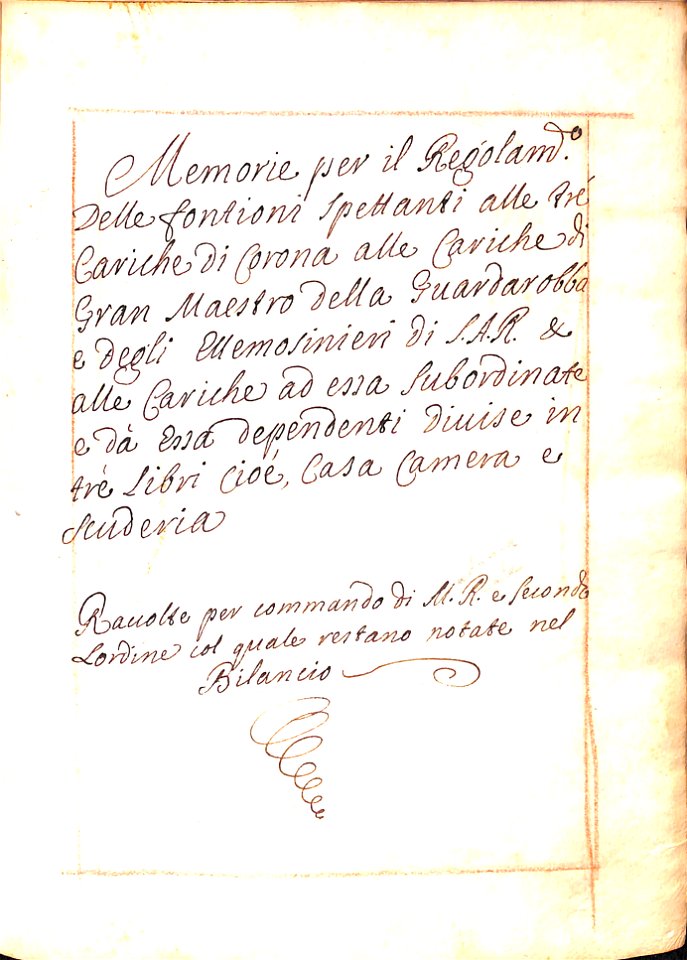 Memorie per il Regolamd.o
Delle fontioni spettanti alle trè
Cariche di Corona alle Cariche di
Gran Maestro della Guardarobba
e degli Ellemosinieri di S.A.R. &
alle Cariche ad essa subordinate
e dà Essa dependenti diuise in
trè Libri Cioé, Casa Camera e
Scuderia
Racolte per commando di M. R. e secondo
Lordine col quale restano notate nel
Bilancio